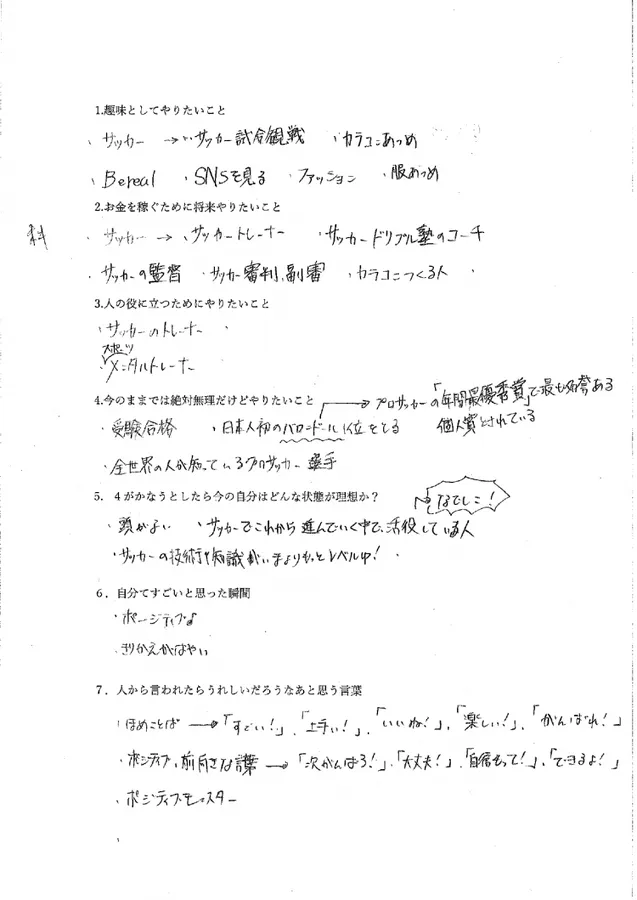 1.趣味としてやりたいこと
・サッカー →・サッカー試合観戦 ・カラコンあつめ
・Bereal ・SNSを見る ・ファッション ・服あつめ
2.お金を稼ぐために将来やりたいこと
・サッカー → ・サッカートレーナー ・サッカードリブル塾のコーチ
・サッカーの監督 ・サッカー審判、副審 ・カラコンつくる人 ・
3.人の役に立つためにやりたいこと
・サッカーのトレーナー ・
スポーツ
・メンタルトレーナー
4.今のままでは絶対無理だけどやりたいこと
→プロサッカーの「年間最優秀賞」で最も名誉ある
個人賞とされている
・受験合格 ・日本人初のバロンドール1位をとる
・全世界の人が知っているプロサッカー選手
5．４がかなうとしたら今の自分はどんな状態が理想か？
なでしこ！
・頭がよい ・サッカーでこれから進んでいく中で、活役している人
・サッカーの技術や知識がいまよりもっとレベルup! ・
6．自分てすごいと思った瞬間
・ポージティブ♪
・きりかえがはやい
7．人から言われたらうれしいだろうなあと思う言葉
・ほめことば →「すごい！」、「上手い！」、「いいね！」、「楽しい！」、「がんばれ！」
・ポジティブ、前向きな言葉 →「次がんばろ！」、「大丈夫！」、「自信もって！」、「できるよ！」
・ポジティブモンスター